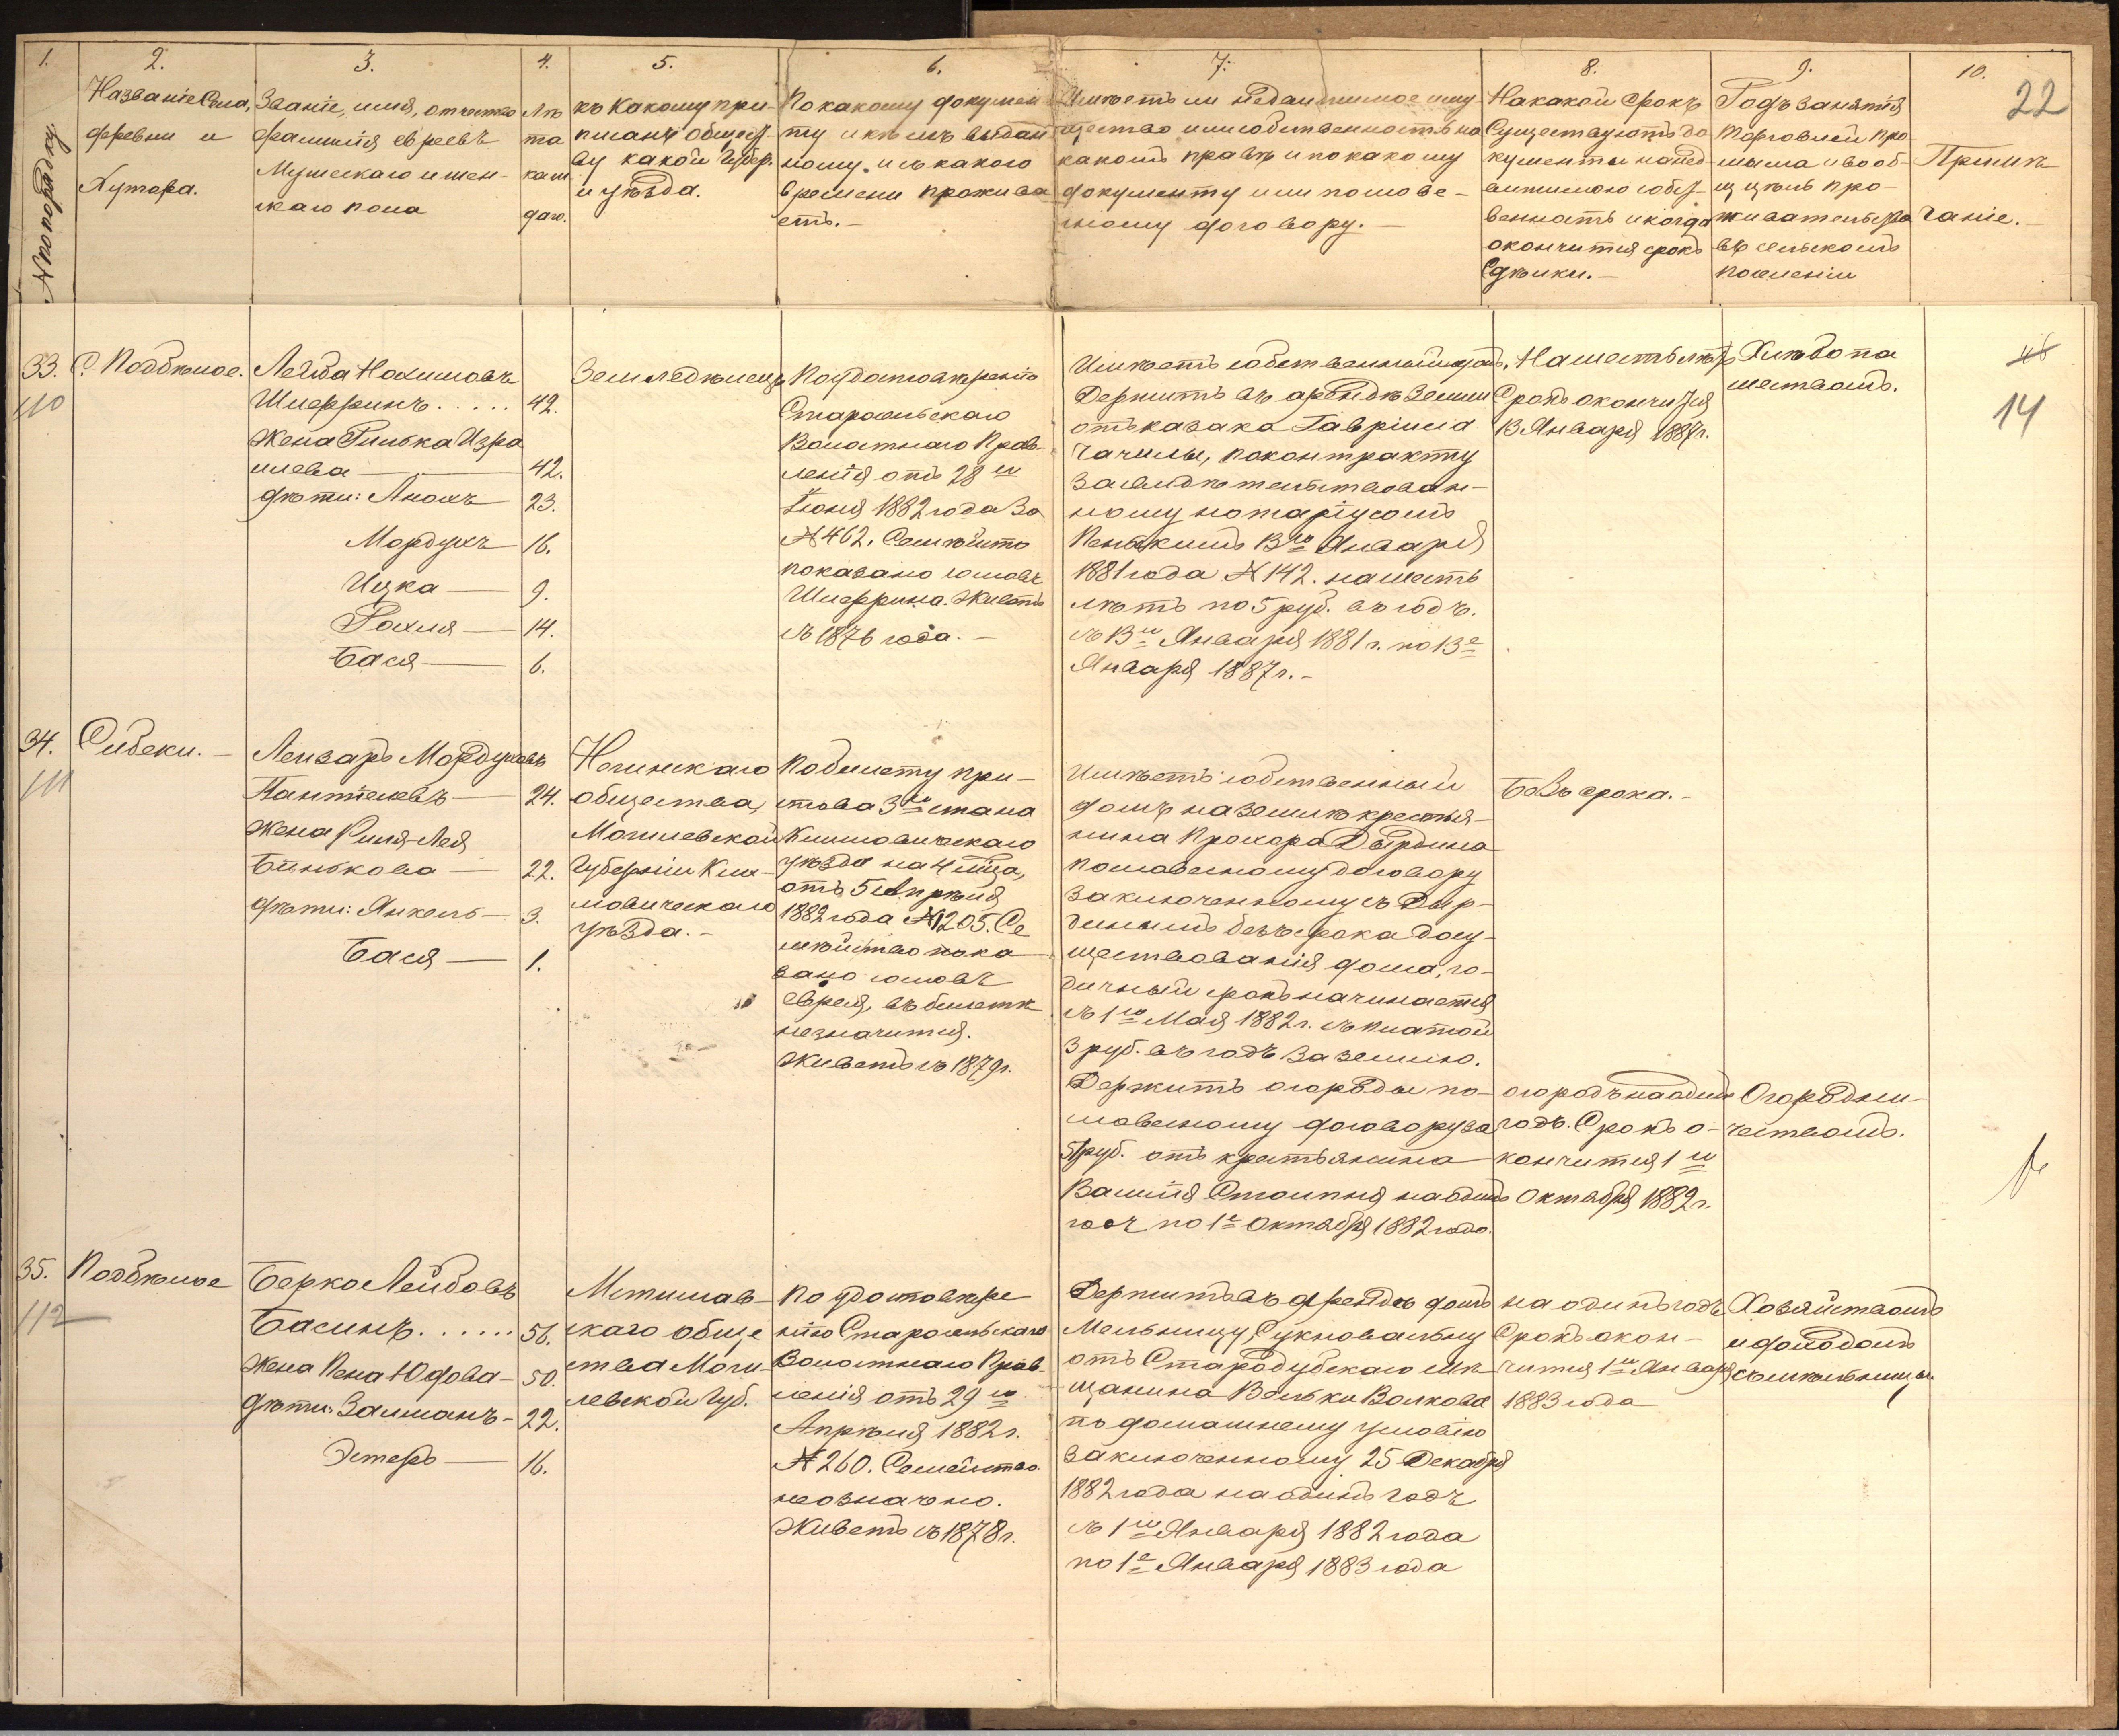 22
1.
№ по порядку.
2.
Названіе Села,
деревни и
Хутора.
3.
Званіе, имя, отчество
фамилія евреевъ
Мужескаго и жен-
скаго пола
4.
Лѣ
та
каж
даго.
5.
къ какому при-
писанъ общест-
ву какой Губер.
и уѣзда.
6.
По какому докумен
ту и кѣмъ выдан
ному, и съ какого
времени прожива
етъ.-
7.
Имѣетъ ли недвижимое иму
щество или собственность на
какомъ правѣ и по какому
документу или словес-
ному договору. -
8.
На какой срокъ
Существуютъ до
кументы на нед
вижимою собст-
венность и когда
окончится срокъ
Сдѣлки.-
9.
Родъ занятія
торговлей про
мысла и вооб-
щ цѣль про-
живательства
въ сельскомъ
поселеніи
10.
Примѣ
чаніе.
33.
110
С. Подбѣлое.
Лейба Нохимовъ
Шифринъ . . . . . 42.
Жена Гилька Изра
илева — 42.
дѣти: Анохъ 23.
Мордухъ 16.
Ицка — 9.
Рохля — 14.
Бася — 6.
Земледѣлецъ
По удостовѣренію
Старосельскаго
Волостнаго Прав-
ленія отъ 28 го
Іюня 1882 года за
№ 462. Семѣйство
показано со словъ
Шифрина. Живетъ
съ 1876 года. -
Имѣетъ собственный домъ,
Держитъ въ арендѣ земли
отъ казака Гавріила
Чачилы, по контракту
засвидѣтельствован-
ному нотаріусомъ
13го Января
1881 года № 142. на шесть
лѣтъ по 5 руб. въ годъ.
съ 13го Января 1881 г. по 13е
Января 1887 г. -
На шесть лѣтъ
Срокъ окончится
13 Января 1887 г.
Хлѣбопа
шествомъ.
14
34.
111
Сибеки. -
Лейзаръ Мордуховъ
Пантелевъ — 24.
Жена Риля-Лея
Бинькова — 22.
дѣти: Янкель — 3.
Бася — 1.
общества,
Могилевской
Губерніи Кли-
мовическаго
уѣзда. -
По билету при-
става 3го стана
Климовическаго
уѣзда на 4 м-ца,
отъ 5 Апрѣля
1882 года № 1205. Се
мѣйство пока
зано со словъ
еврея, въ билетѣ
не значится.
Живетъ съ 1879 г.
Имѣетъ собственный
домъ на земли крестья-
нина Прохора Дырдина
по словесному договору
заключенному съ Дыр-
динымъ безъ срока до су-
ществованія дома, го-
дичный срокъ начинается
съ 1го Мая 1882 г. съ платой
3 руб. въ годъ за землю.
Держитъ огороды по
словесному договору за
5 руб. отъ крестьянина
Василія Столпня на одинъ
годъ по 1е Октября 1882 года.
Безъ срока. -
огородъ на одинъ
годъ. Срокъ о-
кончится 1го
Октября 1882 г.
Огородни-
чествомъ.
35.
112
Подбѣлое
Берко Лейбовъ
Басинъ. . . . . . 56.
Жена Пена Юдова - 50.
дѣти: Залманъ - 22.
Эстеръ — 16.
Мстислав-
скаго обще
ства Моги-
левской Губ.
По удостовѣре
нію Старосельскаго
Волостнаго Прав
ленія отъ 29 го
Апрѣля 1882 г.
№ 260. Семейство
не означено.
Живетъ съ 1878 г.
Держитъ въ арендѣ домъ
Мельницу, Сукновальну
отъ Стародубскаго мѣ
щанина Вольки Волкова
по домашнему условію
заключенному 25 Декабря
1882 года на одинъ годъ
съ 1го Января 1882 года
по 1е Января 1883 года
на одинъ годъ
Срокъ окон-
чится 1го Января
1883 года
Хозяйствомъ
и доходомъ
съ мѣльницы.